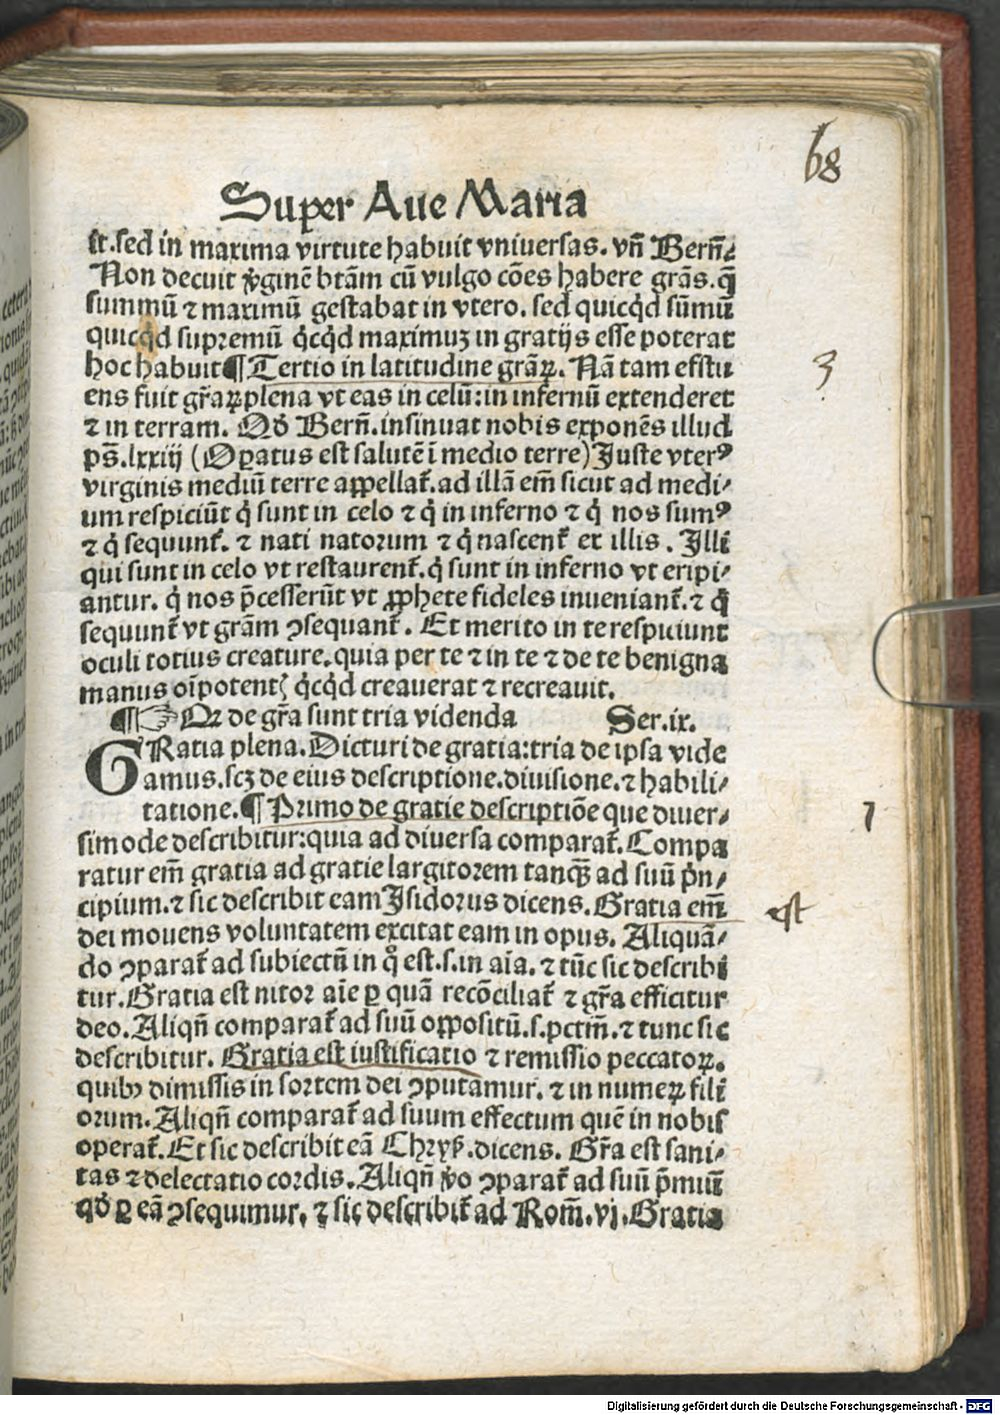 68
Super Aue Maria
st.sed in maxima virtute habuit vniuersas. vñ Berñ.
Non decuit ꝟginē btām cū vulgo cōes habere grās.q̄
summū ⁊ maximū gestabat in vtero. sed quicqͥd sūmū
quicqͥd supremū qͥcqͥd maximuꝫ in gratijs esse poterat
hoc habuit¶Tertio in latitudine grāꝝ. Nā tam efflu
3
ens fuit gr̄aꝝ plena vt eas in celū:in infernū extenderet
⁊ in terram. Qđ Berñ.insinuat nobis exponēs illud
pš.lxxiij (Oꝑatus est salutē ī medio terre)Juste vterꝰ
virginis mediū terre appellat̄.ad illā em̄ sicut ad medi⸗
um respiciūt qͥ sunt in celo ⁊ qͥ in inferno ⁊ qͥ nos sumꝰ
⁊ qͥ sequunt̄. ⁊ nati natorum ⁊ qͥ nascent̄ ex illis. Illi
qui sunt in celo vt restaurent̄.qͥ sunt in inferno vt eripi⸗
antur. qͥ nos p̄cesserūt vt ꝓphete fideles inueniant̄.⁊ qͥ
sequunt̄ vt grām ꝯsequant̄. Et merito in te respiciunt
oculi totius creature.quia per te ⁊ in te ⁊ de te benigna
manus oīpotentꝭ qͥcqͥd creauerat ⁊ recreauit.
¶☞Qꝛ de gr̄a sunt tria videnda Ser.ix.
GRatia plena.Dicturi de gratia:tria de ipsa vide
amus.scꝫ de eius descriptione.diuisione.⁊ habili⸗
tatione.¶Primo de gratie descriptiōe que diuer⸗
1
simode describitur:quia ad diuersa comparat̄.Compa
ratur em̄ gratia ad gratie largitorem tanqꝫ ad suū pͥn⸗
cipium.⁊ sic describit eam Isidorus dicens.Gratia em̄
est
dei mouens voluntatem excitat eam in opus. Aliquā⸗
do ꝯparat̄ ad subiectū in qͦ est.s.in aīa. ⁊ tūc sic describi
tur.Gratia est nitor aīe ꝑ quā recōciliat̄ ⁊ gr̄a efficitur
deo.Aliqñ comparat̄ ad suū oppositū.s.pctm̄.⁊ tunc sic
describitur. Gratia est iustificatio ⁊ remissio peccatoꝝ.
quibꝰ dimissis in sortem dei ꝯputamur. ⁊ in numeꝝ fili
orum.Aliqñ comparat̄ ad suum effectum quē in nobis
operat̄.Et sic describit eā Chryš.dicens. Gr̄a est sani⸗
tas ⁊ delectatio cordis.Aliqñ ꝟo ꝯparat̄ ad suū p̄miū
qđ ꝑ eā ꝯsequimur, ⁊ sic describit̄ ad Rom̄.vj.Gratia
Digitalisierung gefördert durch die Deutsche Forschungsgemeinschaft - DFG